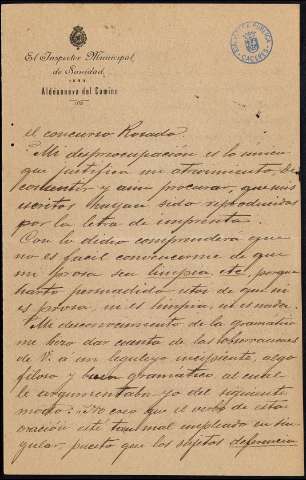 El Inspector Municipal
de Sanidad
Aldeanueva del Camino
BIBLIOTECA PUBLICA
CACERES
el concurso Rosado.
Mi despreocupación es lo único
que justifica mi atrevimiento, de
consentir y aun procurar, que mis
escritos hayan sido reproducidos
por la letra de imprenta.
Con lo dicho comprenderá que
no es facil convencerme de que
mi prosa sea limpia, etc, porque
harto persuadido estoy de que ni
es prosa, ni es limpia, ni es nada.
Mi desconocimiento de la gramática
me hizo dar cuenta de las observaciones
de V. á un leguleyo incipiente, algo
filoso y buen gramático al cual
le argumentaba yo del siguiente
modo: Yo creo que el verbo de esta
oración esté tan mal empleado en sin-
gular, puesto que los sujetos deferencia